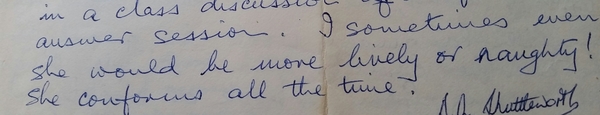 in a class discussion
answer session. I sometimes even
she would be more lively or naughty!
She conforms all the time.
Shuttleworth